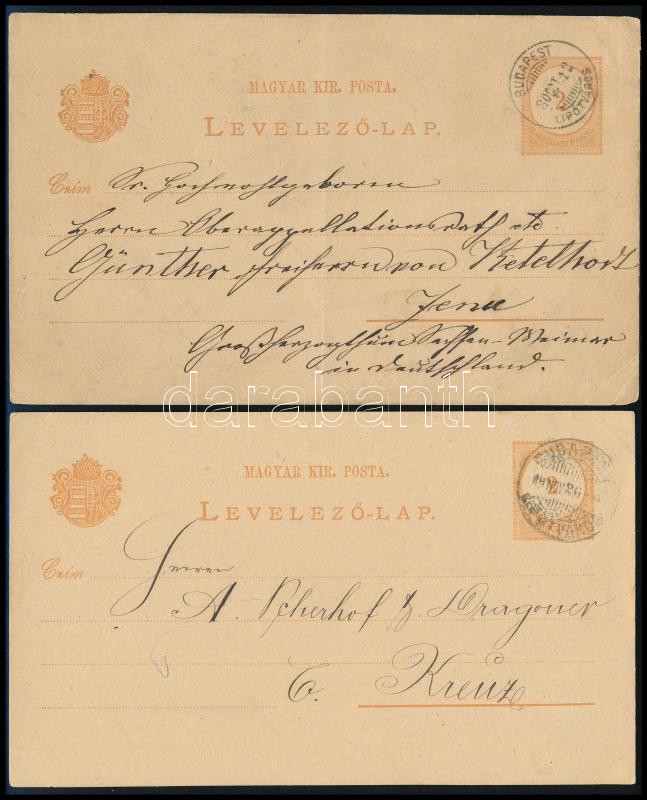 MAGYAR KIR. POSTA.
LEVELEZŐ-LAP.
BUDAPEST
LIPÓTVÁROS
2
Czim Sr. Hochwohlgeboren
Herrn Oberappellationsrath etc
Günther Freiherrn von Ketelhodt
Jena
Großherzogthum Sachsen-Weimar
in Deutschland.
darabanth
MAGYAR KIR. POSTA.
LEVELEZŐ-LAP.
Czim Herrn
A. Scherhof & Dragoner
Kreuz